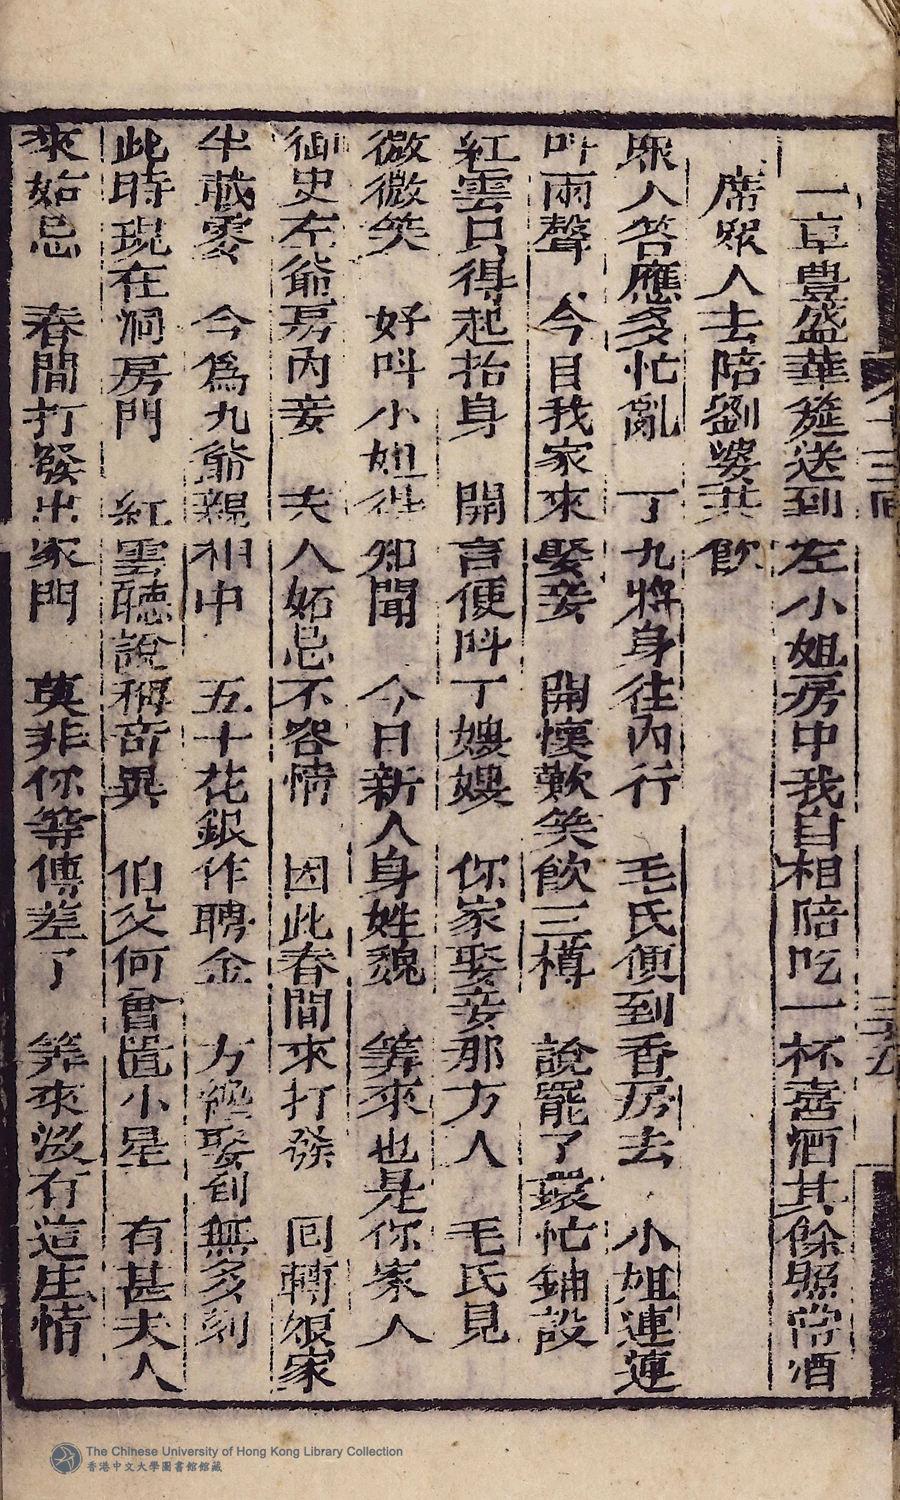 一桌豊盛華筵送到左小姐房中我自相陪吃一杯喜酒其餘照常酒
席眾人去陪劉婆共飲
眾人答應多忙亂 丁九將身往內行 毛氏便到香房去 小姐連連
呌兩聲 今日我家來娶妾 開懷歡笑飲三樽 說罷了環忙鋪設
紅雲只得起抬身 開言便呌丁嫂嫂 你家娶妾那方人 毛氏見
微微笑 好呌小姐得知聞 今日新人身姓魏 筭來也是你家人
御史左爺房內妾 夫人妬忌不容情 因此春間來打發 回轉娘家
半載零 今為九爺親相中 五十花銀作聘金 方纔娶到無多刻
此時現在洞房門 紅雲聽說稱奇異 伯父何曾置小星 有甚夫人
來妬忌 春間打發出家門 莫非你等傳差了 筭來沒有這庄情
十三回
三十五
The Chinese University of Hong Kong Library Collection
香港中文大學圖書館館藏